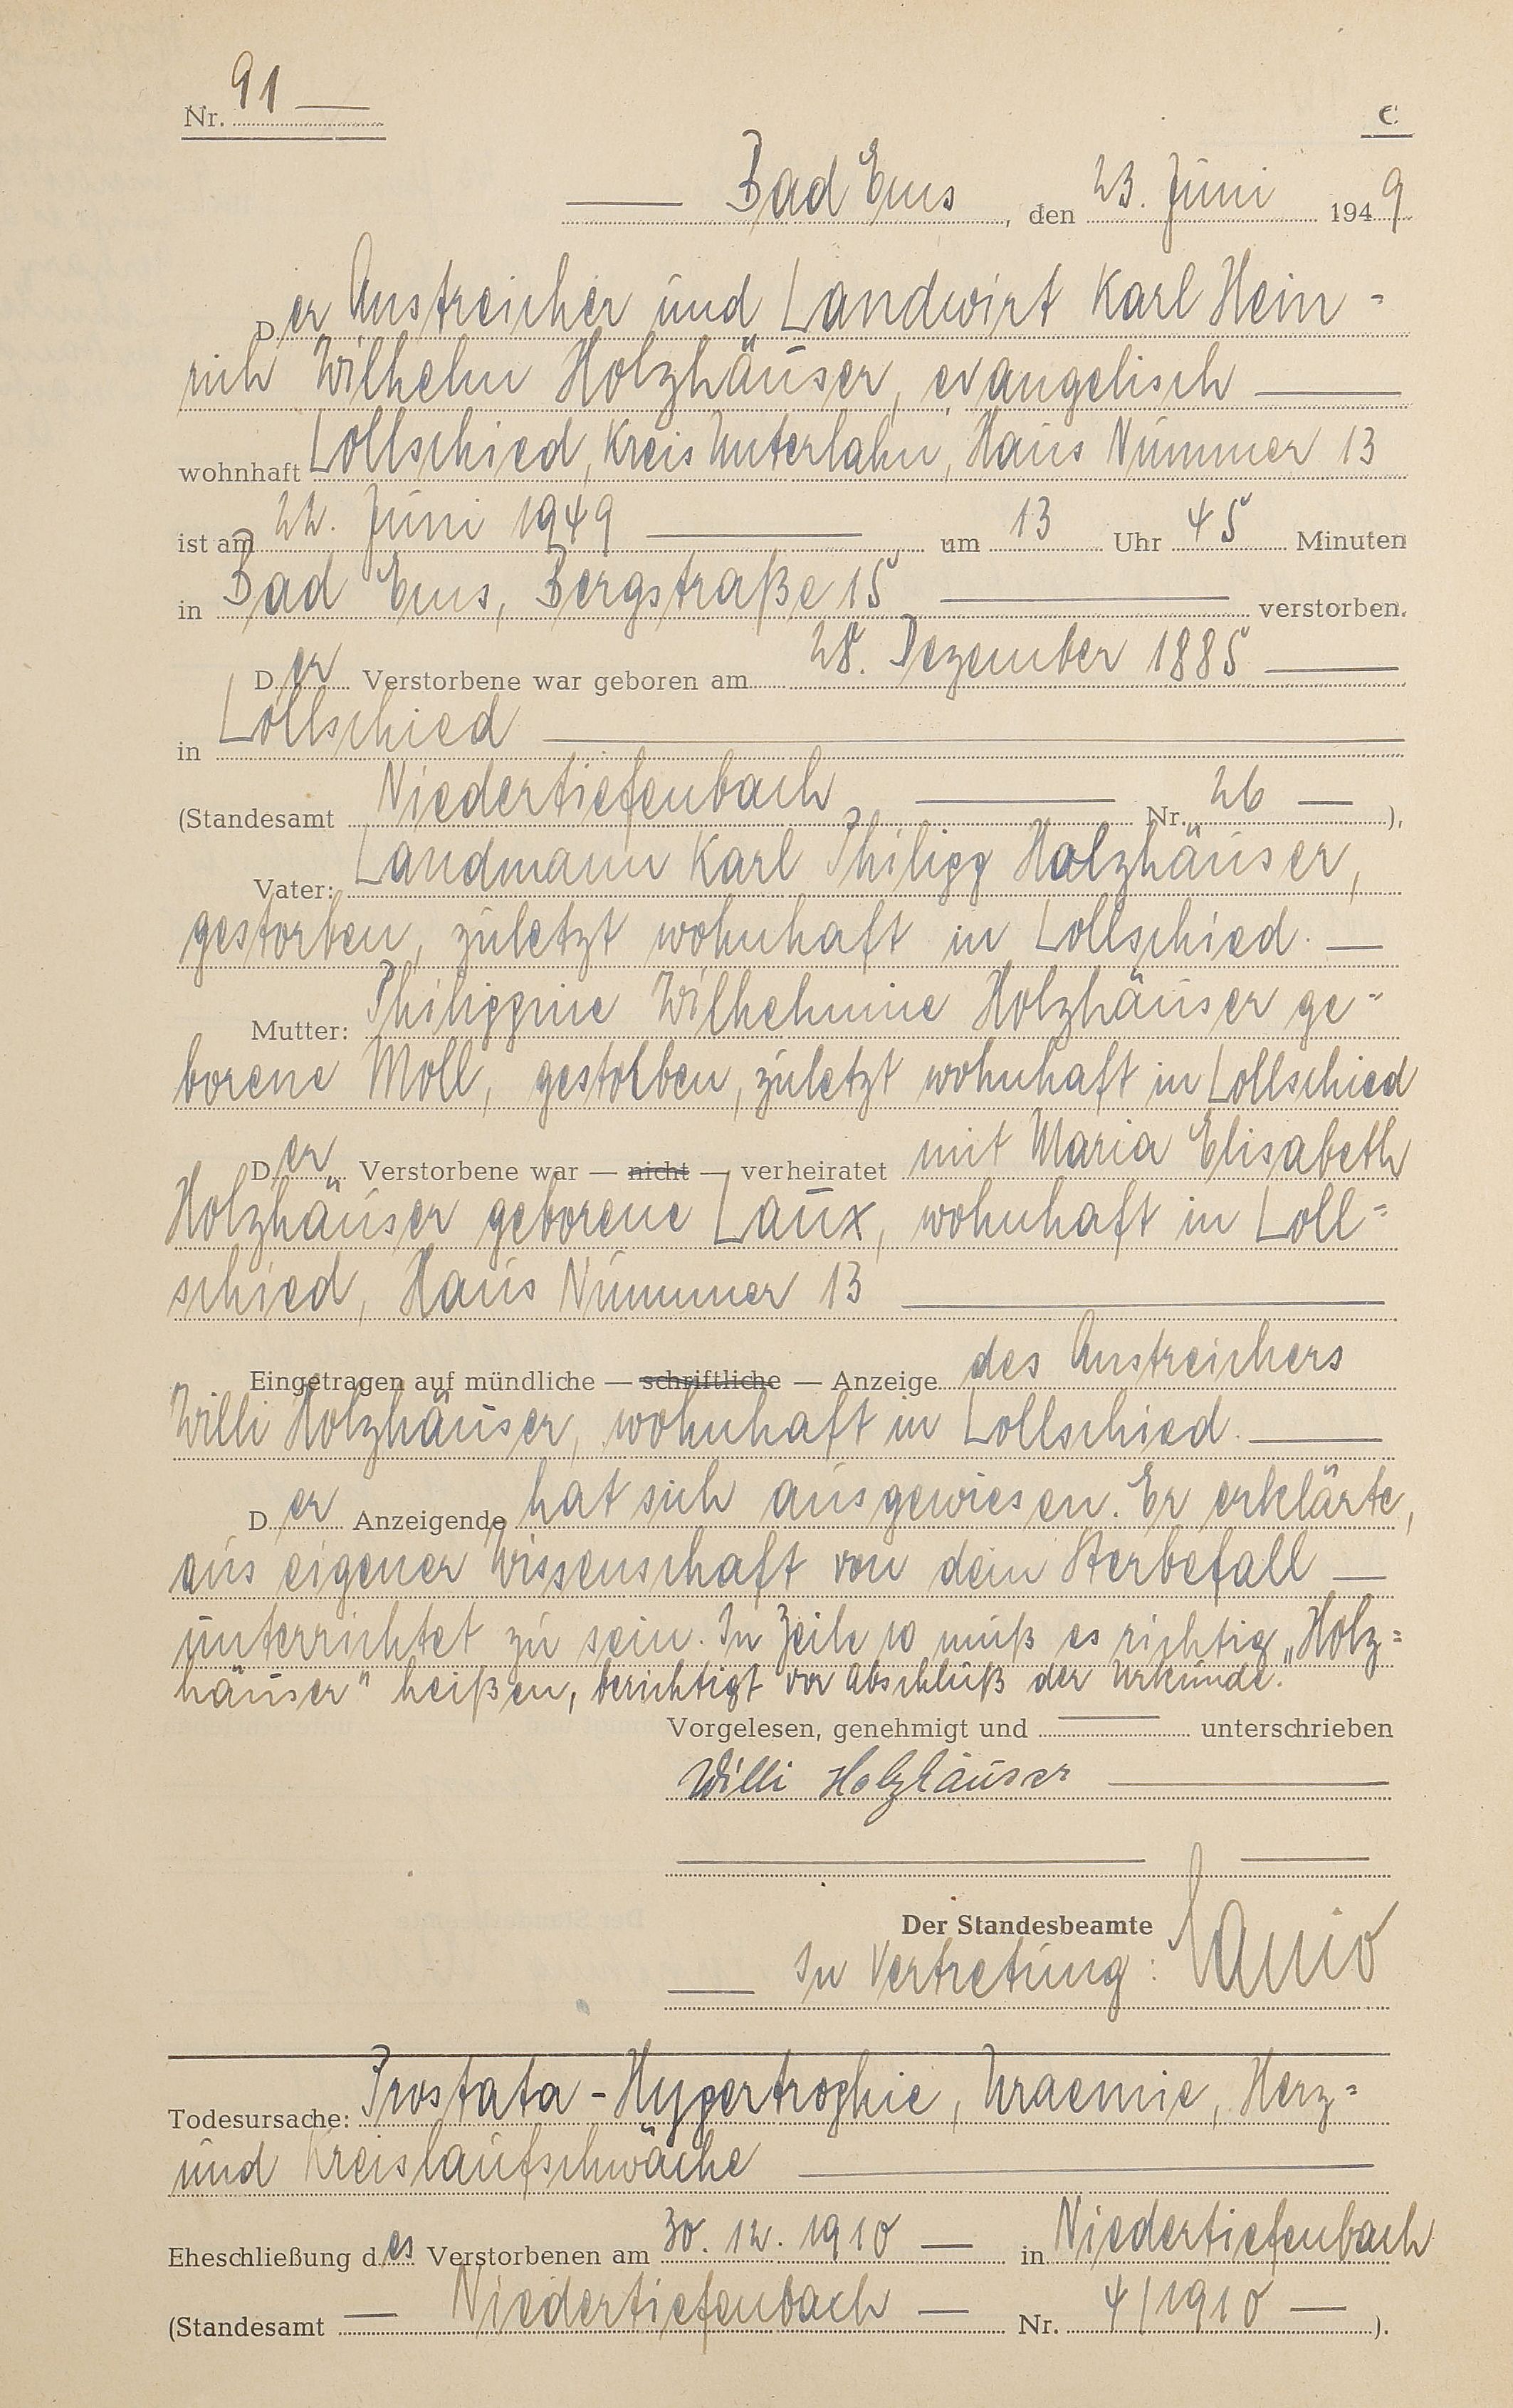 Nr. 91 —
C
— Bad Ems, den 23. Juni 1949
Der Anstreicher und Landwirt Karl Hein=
rich Wilhelm Holzhäuser, evangelisch —
wohnhaft Lollschied, Kreis Unterlahn, Haus Nummer 13
ist am 22. Juni 1949 — um 13 Uhr 45 Minuten
in Bad Ems, Bergstraße 15 — verstorben.
Der Verstorbene war geboren am 28. Dezember 1885 —
in Lollschied —
(Standesamt Niedertiefenbach — Nr. 26 — ),
Vater: Landmann Karl Philipp Holzhäuser,
gestorben, zuletzt wohnhaft in Lollschied. —
Mutter: Philippine Wilhelmine Holzhäuser ge=
borene Moll, gestorben, zuletzt wohnhaft in Lollschied
Der Verstorbene war — nicht — verheiratet mit Maria Elisabeth
Holzhäuser geborene Laux, wohnhaft in Loll=
schied, Haus Nummer 13 —
Eingetragen auf mündliche — schriftliche — Anzeige des Anstreichers
Willi Holzhäuser, wohnhaft in Lollschied. —
Der Anzeigende hat sich ausgewiesen. Er erklärte,
aus eigener Wissenschaft von dem Sterbefall —
unterrichtet zu sein. In Zeile 10 muß es richtig „Holz=
häuser" heißen, berichtigt vor Abschluß der Urkunde.
Vorgelesen, genehmigt und — unterschrieben
Willi Holzhäuser —
Der Standesbeamte
— In Vertretung:
Todesursache: Prostata-Hypertrophie, Uraemie, Herz=
und Kreislaufschwäche —
Eheschließung des Verstorbenen am 30. 12. 1910 — in Niedertiefenbach
(Standesamt — Niedertiefenbach — Nr. 4/1910 — ).